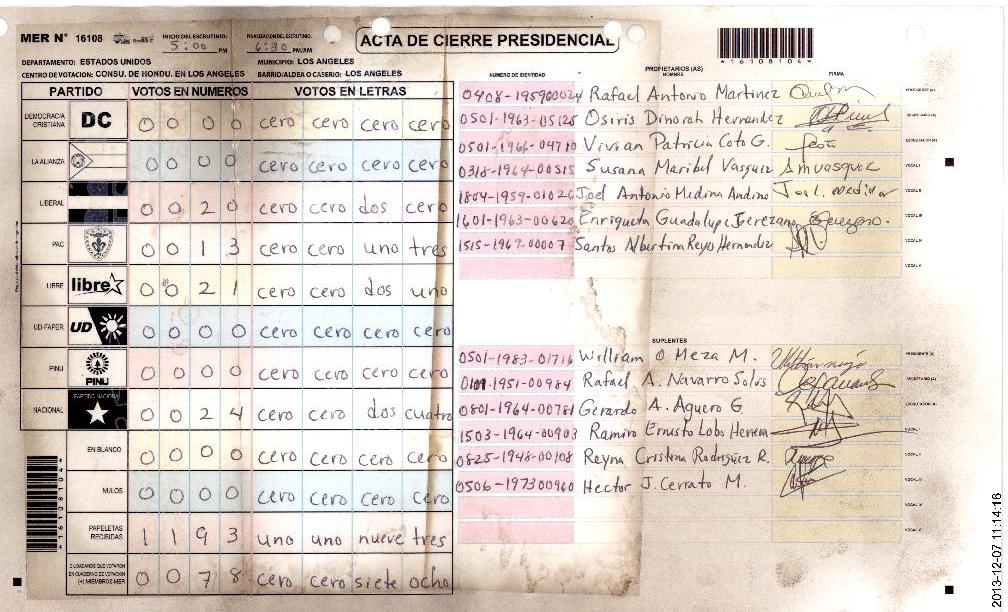 MER N° 16108
INICIO DEL ESCRUTINIO: 5:00 PM
FINALIZACION DEL ESCRUTINIO: 6:30 PM/AM
ACTA DE CIERRE PRESIDENCIAL
*16108104*
DEPARTAMENTO: ESTADOS UNIDOS
MUNICIPIO: LOS ANGELES
CENTRO DE VOTACION: CONSU. DE HONDU. EN LOS ANGELES
BARRIO/ALDEA O CASERIO: LOS ANGELES
PARTIDO VOTOS EN NUMEROS VOTOS EN LETRAS
DEMOCRACIA CRISTIANA DC 0 0 0 0 cero cero cero cero
LA ALIANZA 0 0 0 0 cero cero cero cero
LIBERAL 0 0 2 0 cero cero dos cero
PAC 0 0 1 3 cero cero uno tres
LIBRE libre 0 0 2 1 cero cero dos uno
UD-FAPER UD 0 0 0 0 cero cero cero cero
PINU PINU 0 0 0 0 cero cero cero cero
NACIONAL PARTIDO NACIONAL 0 0 2 4 cero cero dos cuatro
EN BLANCO 0 0 0 0 cero cero cero cero
NULOS 0 0 0 0 cero cero cero cero
PAPELETAS RECIBIDAS 1 1 9 3 uno uno nueve tres
CIUDADANOS QUE VOTARON EN CUADERNO DE VOTACION (+) MIEMBROS MER 0 0 7 8 cero cero siete ocho
PROPIETARIOS (AS)
NUMERO DE IDENTIDAD NOMBRE FIRMA
0408-195960024 Rafael Antonio Martinez PRESIDENTE(A)
0501-1963-05125 Osiris Dinorah Hernandez SECRETARIO(A)
0501-1966-04710 Vivian Patricia Coto G. ESCRUTADOR(A)
0318-1964-00515 Susana Maribel Vasquez Smvasquez VOCAL I
1804-1959-01026 Joel Antonio Medina Andino Joel. medina VOCAL II
1601-1963-00620 Enriqueta Guadalupe Cerezano VOCAL III
1515-1967-00007 Santos Albertina Reyes Hernandez VOCAL IV
VOCAL V
SUPLENTES
0501-1983-01716 William O Meza M. PRESIDENTE(A)
0101-1951-00984 Rafael A. Navarro Solos SECRETARIO(A)
0801-1964-00781 Gerardo A. Aguero G ESCRUTADOR(A)
1503-1964-00903 Ramiro Ernesto Lobo Herrera VOCAL I
0825-1948-00108 Reyna Cristina Rodriguez R. VOCAL II
0506-197300960 Hector J. Cerrato M. VOCAL III
VOCAL IV
VOCAL V
2013-12-07 11:14:16